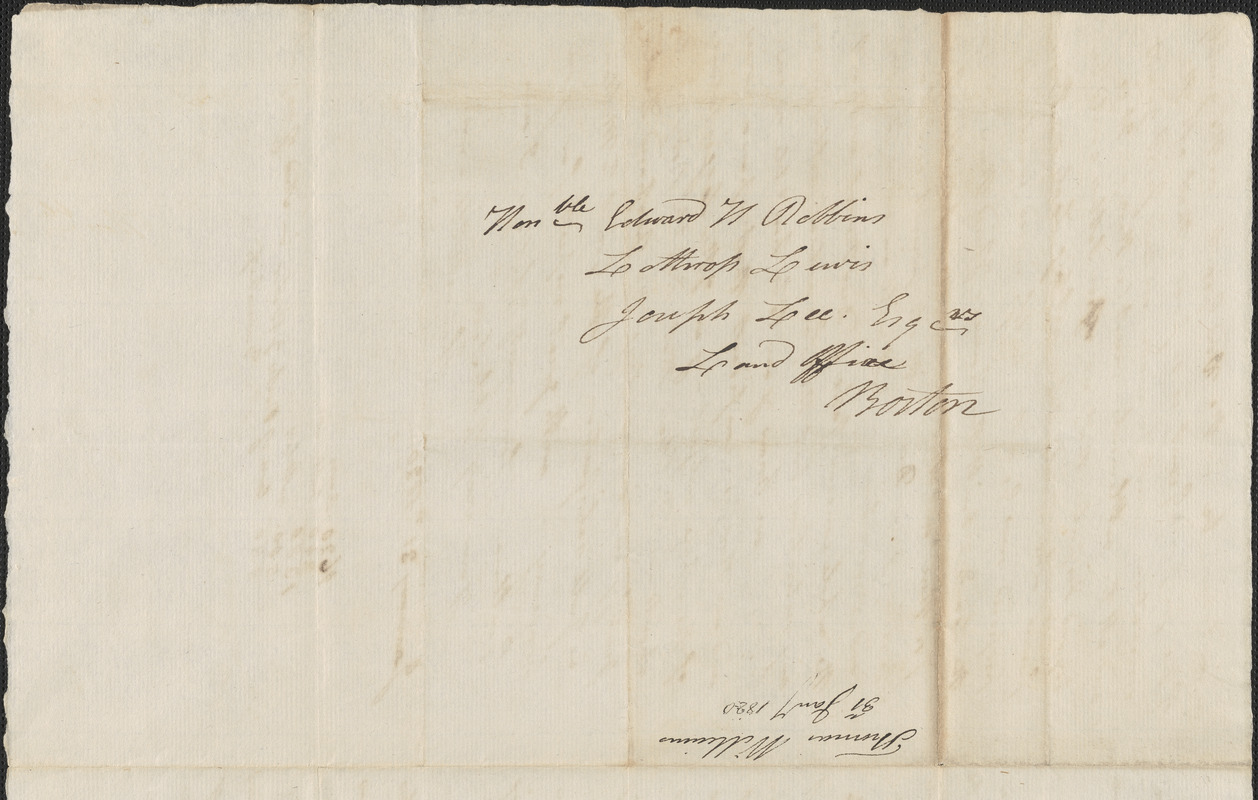 Honble Edward H Robbins
Lothrop Lewis
Joseph Lee. Esqrs
Land Office
Boston
Thomas Williams
31 Jany 1820